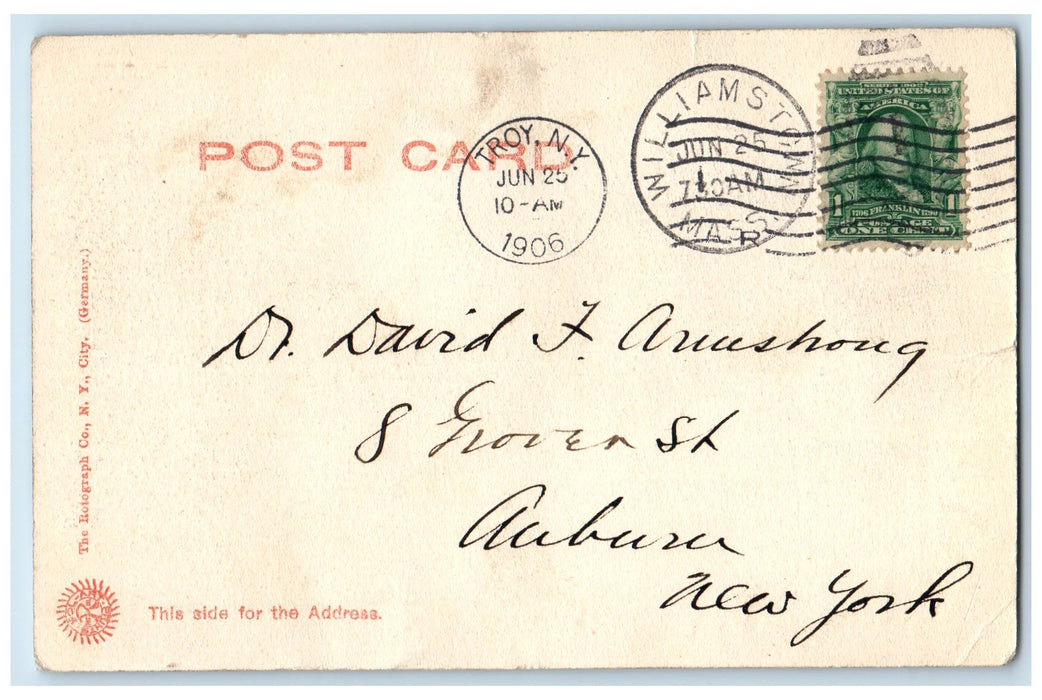 POST CARD
TROY, N.Y.
JUN 25
10-AM
1906
WILLIAMSTOWN
JUN 25
7 30AM
MASS.
R
SERIES 1902
UNITED STATES OF
AMERICA
1 1
1706 FRANKLIN 1790
POSTAGE
ONE CENT
Dr. David F. Armstrong
8 Grover St
Auburn
New York
The Rotograph Co., N. Y., City. (Germany.)
This side for the Address.